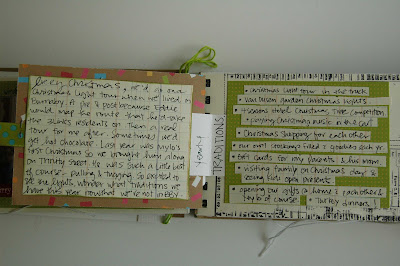 Every Christmas, we'd go on a
Christmas light tour when we lived in
Burnaby. A for postbecause Eddie
would map the route that he'd take
the residents on then a
tour for me after. Sometimes we'd
get hot chocolate. Last year was Mylo's
first Christmas so we brought him along
on Trinity Street. He was such a little boy
of course.. pulling & tugging. So excited to
see the lights. Wonder what traditions we
have this year now that we're not in BBY.
TRADITIONS
• Christmas light tour in the truck
• Van Dusen garden Christmas lights
• Christmas Tree Competition
• playing Christmas music in the car
• Christmas Shopping for each other
• our own stockings filled w/ goodies each yr.
• Gift Cards for my parents & his mom
• visiting family on Christmas day &
seeing kids open presents
• opening our gifts @ home to each other &
Mylo of course • Turkey dinners!